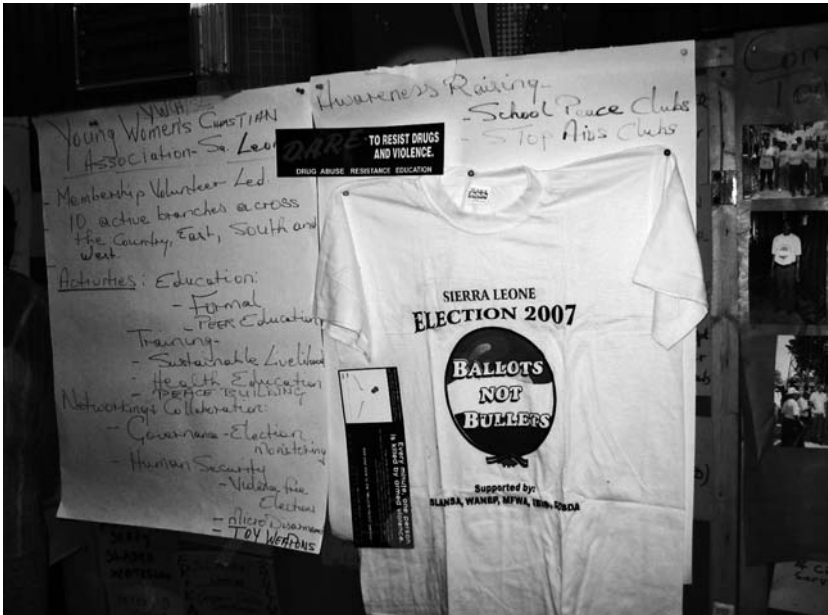 YWCA
Young Women's Christian
Association - Sa. Leone
- Membership Volunteer Led.
- 10 active branches across
the Country, East, South and
West.
Activities: Education:
- Formal
- Peer Education
Training-
- Sustainable Livelihood
- Health Education
- PEACE BUILDING
Networking & Collaboration:
- Governance-Election
monitoring
- Human Security
- Violence free
Elections
- Micro Disarmam
- TOY WEAPONS
Awareness Raising-
- School Peace Clubs
- STop Aids Clubs
D.A.R.E. TO RESIST DRUGS
AND VIOLENCE.
DRUG ABUSE RESISTANCE EDUCATION
SIERRA LEONE
ELECTION 2007
BALLOTS
NOT
BULLETS
Supported by:
SLANSA, WANEP, MFWA,
Every minute, one person
is killed by armed violence.
Com